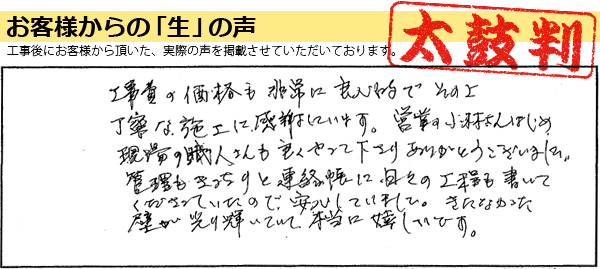 お客様からの「生」の声
太鼓判
工事後にお客様から頂いた、実際の声を掲載させていただいております。
工事費の価格も非常に良心的で その上
丁寧な施工に感謝しています。営業の小林さんはじめ
現場の職人さんも良くやって下さりありがとうございました。
管理もきっちりと連絡帳に日々の工程も書いて
くださっていたので、安心していました。きたなかった
壁が光り輝いていて本当に嬉しいです。